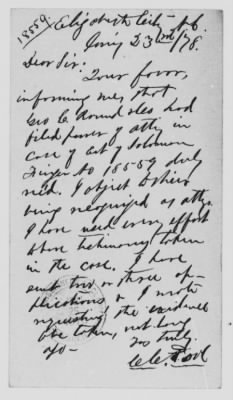 18559.
Elizabeth City N.C.
Dear Sir:
Your favor,
informing me, that
Geo C. Round also had
filed power of atty in
case of
No 18559 duly
recd. I object to his
being recognized as atty.
I have used every effort
to have testimony taken
in the case. I have
sent two or three ap-
plications & I wrote
requesting the evidence
be taken, not long
ago—